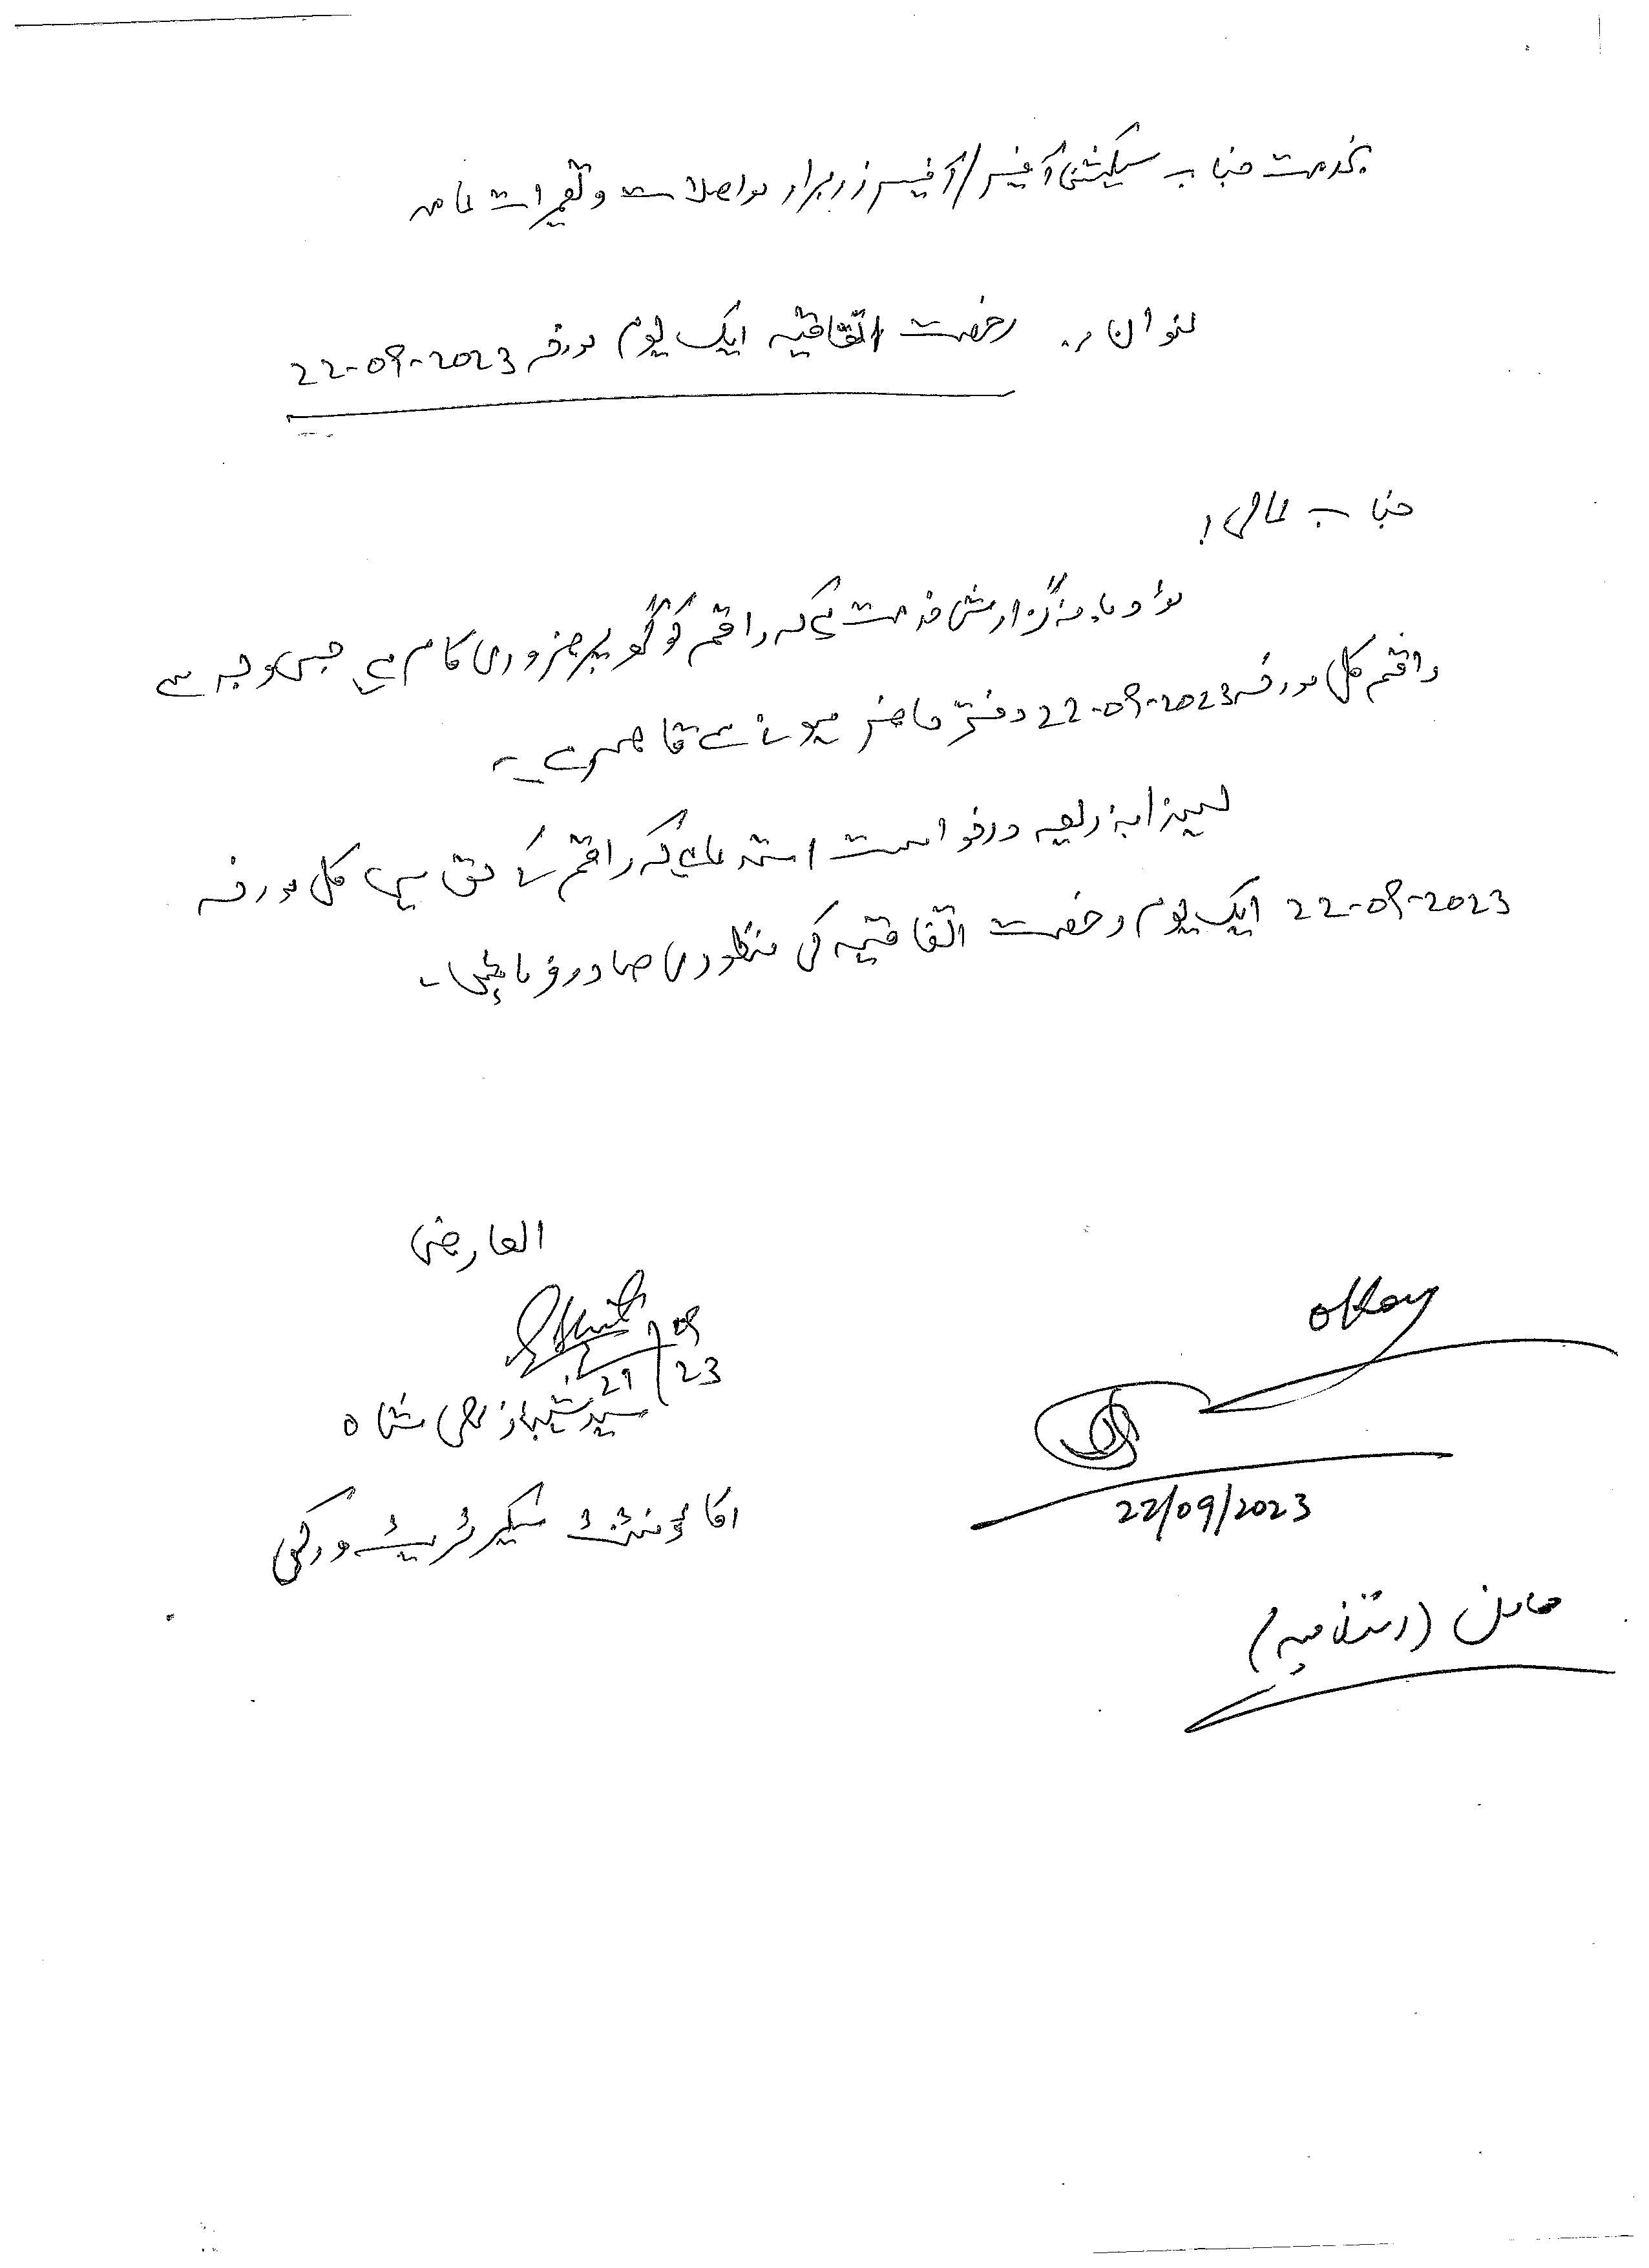 بخدمت جناب سیکشن آفیسر/آفیسر زربرار مواصلات و تعمیرات عامہ
عنوان:۔ رخصت اتفاقیہ ایک یوم مورخہ 22-09-2023
جناب عالی!
مؤدبانہ گزارش خدمت ہے کہ راقم کو گھر پر ضروری کام ہے جس وجہ سے
راقم کل مورخہ 22-09-2023 دفتر حاضر ہونے سے قاصر ہے۔
لہذا بذریعہ درخواست استدعا ہے کہ راقم کے حق میں کل مورخہ
22-09-2023 ایک یوم رخصت اتفاقیہ کی منظوری صادر فرمائیں۔
العارض
21/09/23
سید شہباز علی شاہ
اکاؤنٹنٹ سیکرٹریٹ ورکس
okay
22/09/2023
(انتظامیہ)